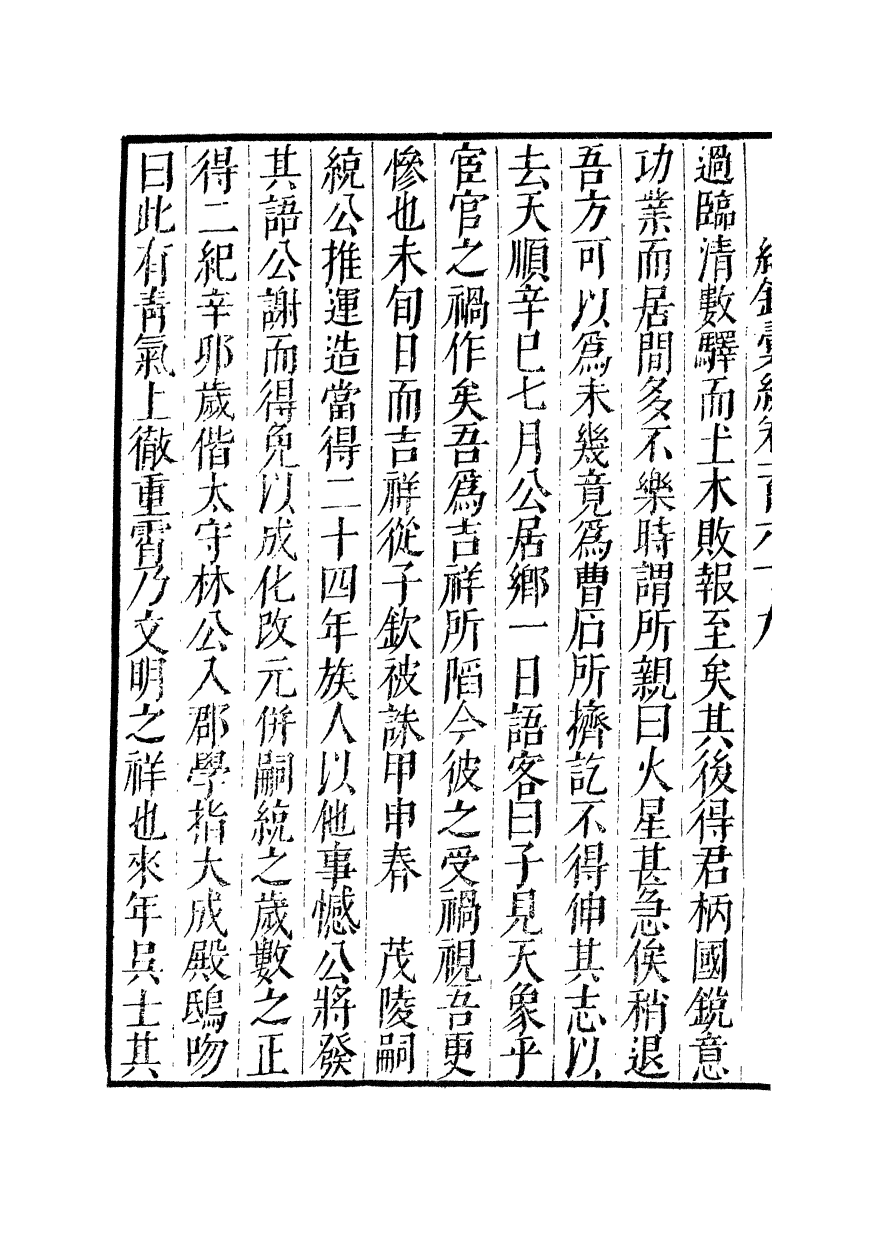 紀錄彙編卷一百六十九
過臨清數驛而土木敗報至矣其後得君柄國銳意
功業而居間多不樂時謂所親曰火星甚急俟稍退
吾方可以爲未幾竟爲曹石所擠訖不得伸其志以
去天順辛巳七月公居鄉一日語客曰子見天象乎
宦官之禍作矣吾爲吉祥所陷今彼之受禍視吾更
慘也未旬日而吉祥從子欽被誅甲申春　茂陵嗣
統公推運造當得二十四年族人以他事憾公將發
其語公謝而得免以成化改元併嗣統之歲數之正
得二紀辛卯歲偕太守林公入郡學指大成殿鴟吻
曰此有靑氣上徹重霄乃文明之祥也來年吳士其